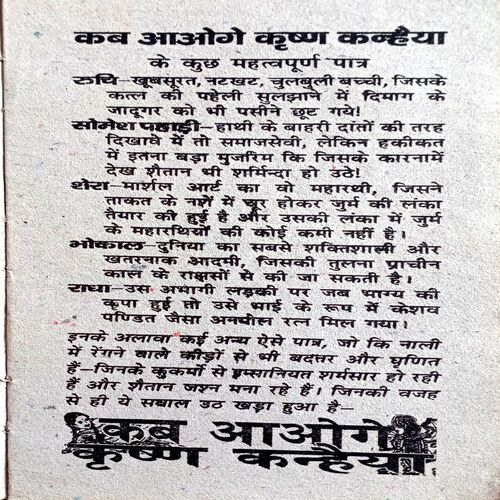 कब आओगे कृष्ण कन्हैया
के कुछ महत्वपूर्ण पात्र
रुचि—खूबसूरत, नटखट, चुलबुली बच्ची, जिसके
कत्ल की पहेली सुलझाने में दिमाग के
जादूगर को भी पसीने छूट गये!
सोमेश पहाड़ी—हाथी के बाहरी दांतों की तरह
दिखावे में तो समाजसेवी, लेकिन हकीकत
में इतना बड़ा मुजरिम कि जिसके कारनामें
देख शैतान भी शर्मिन्दा हो उठे!
शेरा—मार्शल आर्ट का वो महारथी, जिसने
ताकत के नशे में चूर होकर जुर्म की लंका
तैयार की हुई है और उसकी लंका में जुर्म
के महारथियों की कोई कमी नहीं है।
भोकाल—दुनिया का सबसे शक्तिशाली और
खतरनाक आदमी, जिसकी तुलना प्राचीन
काल के राक्षसों से की जा सकती है।
राधा—उस अभागी लड़की पर जब भाग्य की
कृपा हुई तो उसे भाई के रूप में केशव
पण्डित जैसा अनमोल रत्न मिल गया।
इनके अलावा कई अन्य ऐसे पात्र, जो कि नाली
में रेंगने वाले कीड़ों से भी बदतर और घृणित
हैं—जिनके कुकर्मों से इन्सानियत शर्मसार हो रही
हैं और शैतान जश्न मना रहे हैं। जिनकी वजह
से ही ये सवाल उठ खड़ा हुआ है—
कब आओगे
कृष्ण कन्हैया